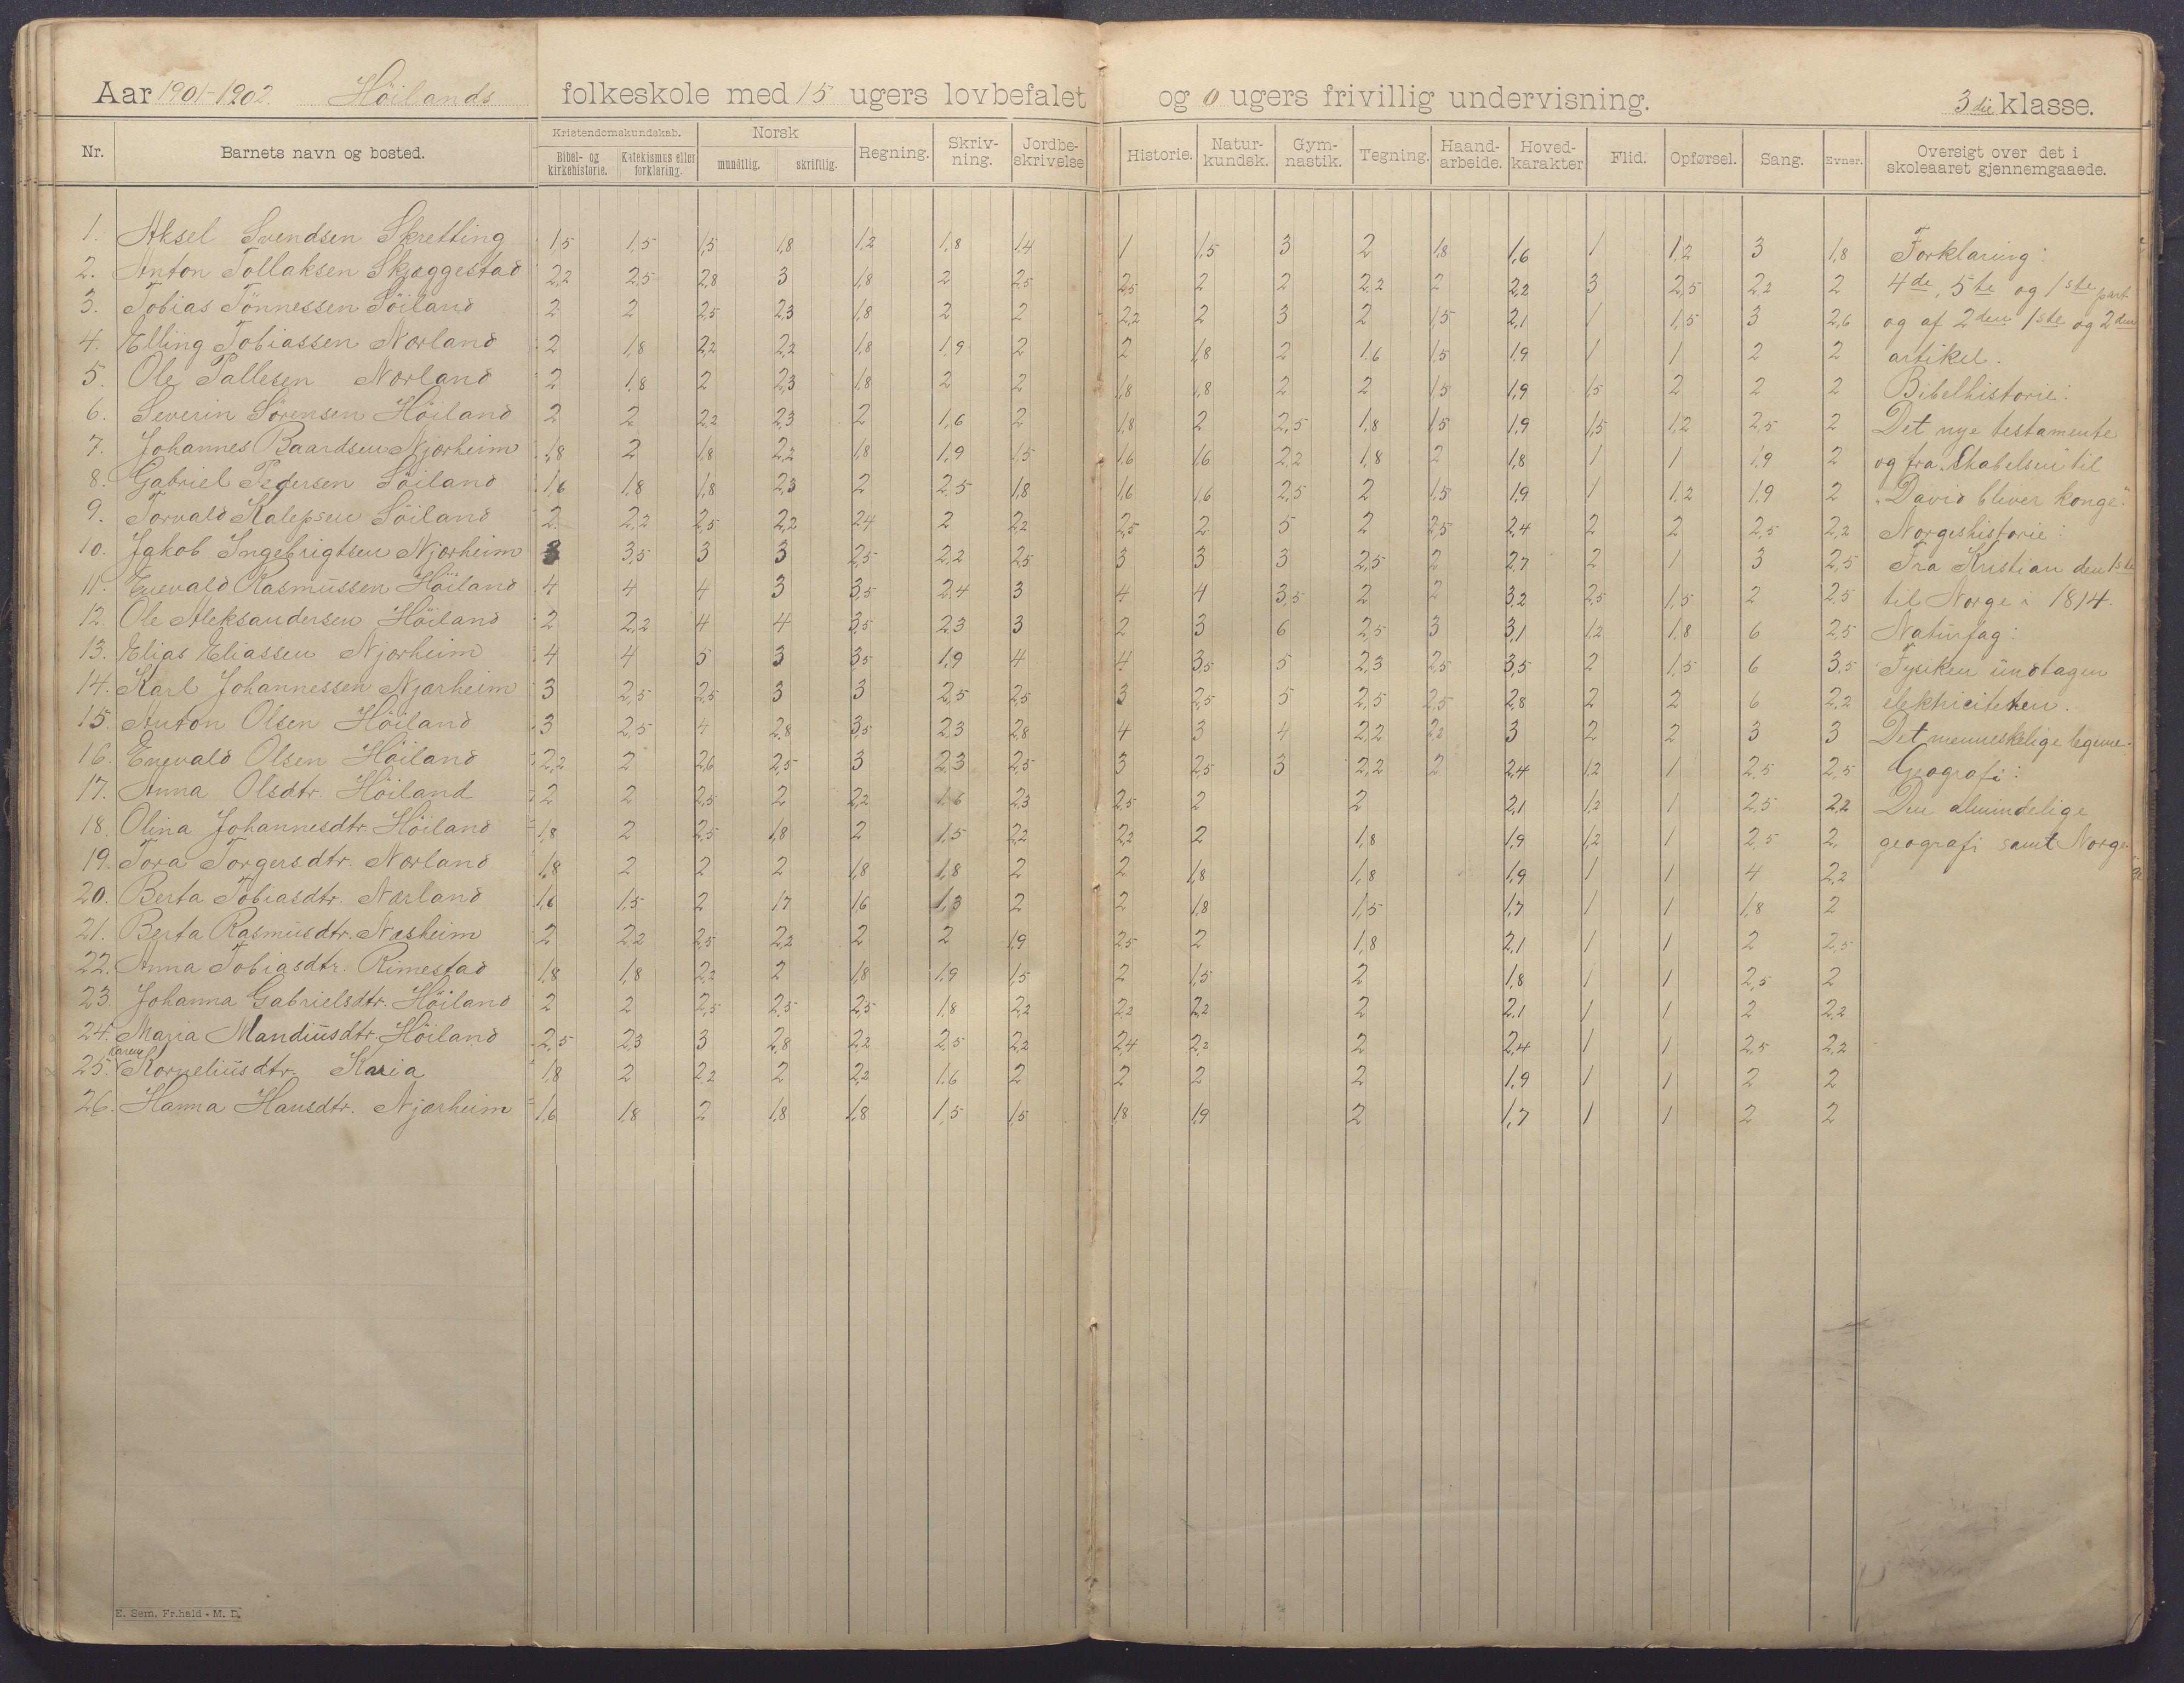 Aar 1901-1902. Höilands folkeskole med 15 ugers lovbefalet og 0 ugers frivillig undervisning. 3die klasse.
Nr. Barnets navn og bosted. Kristendomskundskab. Bibel- og kirkehistorie. Katekismus eller forklaring. Norsk mundtlig. skriftlig. Regning. Skriv-ning. Jordbe-skrivelse Historie. Natur-kundsk. Gym-nastik. Tegning. Haand-arbeide. Hoved-karakter Flid. Opførsel. Sang. Evner. Oversigt over det i skoleaaret gjennemgaaede.
1. Aksel Svendsen Skretting 1,5 1,5 1,5 1,8 1,2 1,8 1,4 1 1,5 3 2 1,8 1,6 1 1,2 3 1,8 Forklaring:
2. Anton Tollaksen Skjæggestad 2,2 2,5 2,8 3 1,8 2 2,5 2,5 2 2 2,2 2 2,2 3 2,5 2,2 2 4de, 5te og 1ste part
3. Tobias Tönnessen Söiland 2 2 2,5 2,3 1,8 2 2 2,2 2 3 2 1,5 2,1 1 1,5 3 2,6 og af 2den 1ste og 2den
4. Elling Tobiassen Nærland 2 1,8 2,2 2,2 1,8 1,9 2 2 1,8 2 1,6 1,5 1,9 1 1 2 2 artikel.
5. Ole Pallesen Nærland 2 1,8 2 2,3 1,8 2 2 1,8 1,8 2 2 1,5 1,9 1,5 2 2 2 Bibelhistorie:
6. Severin Sörensen Höiland 2 2 2,2 2,3 2 1,6 2 1,8 2 2,5 1,8 1,5 1,9 1,5 1,2 2,5 2 Det nye testamente
7. Johannes Baardsen Njærheim 1,8 2 1,8 2,2 1,8 1,9 1,5 1,6 1,6 2,2 1,8 2 1,8 1 1 1,9 2 og fra "Skabelsen til
8. Gabriel Pedersen Söiland 1,6 1,8 1,8 2,3 2 2,5 1,8 1,6 1,6 2,5 2 1,5 1,9 1 1,2 1,9 2 "David bliver konge".
9. Torvald Kalepsen Söiland 2 2,2 2,5 2,2 2,4 2 2,2 2,5 2 5 2 2,5 2,4 2 2 2,5 2,2 Norgeshistorie:
10. Jakob Ingebrigtsen Njærheim 3 3,5 3 3 2,5 2,2 2,5 3 3 3 2,5 2 2,7 2 1 3 2,5 Fra Kristian den 1ste
11. Enevald Rasmussen Höiland 4 4 4 3 3,5 2,4 3 4 4 3,5 2 2 3,2 2,5 1,5 2 2,5 til Norge i 1814.
12. Ole Aleksandersen Höiland 2 2,2 4 4 3,5 2,3 3 2 3 6 2,5 3 3,1 1,2 1,8 6 2,5 Naturfag:
13. Elias Eliassen Njærheim 4 4 5 3 3,5 1,9 4 4 3,5 5 2,3 2,5 3,5 2 1,5 6 3,5 Fysiken undtagen
14. Karl Johannessen Njærheim 3 2,5 2,5 3 3 2,5 2,5 3 2,5 5 2,5 2,5 2,8 2 2 6 2,2 elektriciteten.
15. Anton Olsen Höiland 3 2,5 4 2,8 3,5 2,3 2,8 4 3 4 2,2 2,2 3 2 2 3 3 Det menneskelige legeme.
16. Enevald Olsen Höiland 2,2 2 2,6 2,5 3 2,3 2,5 3 2,5 3 2,2 2 2,4 1,2 1 2,5 2,5 Geografi:
17. Anna Olsdtr. Höiland 2 2 2,5 2 2,2 1,6 2,3 2,5 2 2 2,1 1,2 1 2,5 2,2 Den almindelige
18. Olina Johannesdtr. Höiland 1,8 2 2,5 1,8 2 1,5 2,2 2,2 2 1,8 1,9 1,2 1 2,5 2, geografi samt Norge
19. Tora Torgersdtr. Nærland 1,8 2 2 2 1,8 1,8 2 2 1,8 1,8 1,9 1 1 4 2,2
20. Berta Tobiasdtr. Nærland 1,6 1,5 2 1,7 1,6 1,3 2 2 1,8 1,5 1,7 1 1 1,8 2
21. Berta Rasmusdtr. Næsheim 2 2,2 2,5 2,2 2 2 1,9 2,5 2 1,8 2,1 1 1 2 2,5
22. Anna Tobiasdtr. Rimestad 1,8 1,8 2,2 2 1,8 1,9 1,5 2 1,5 2 1,8 1 1 2,5 2
23. Johanna Gabrielsdtr. Höiland 2 2 2,5 2,5 2,5 1,8 2,2 2,2 2,2 2 2,1 1 1 2 2,2
24. Maria Mandiusdtr. Höiland 2,5 2,3 3 2,8 2,2 2,5 2,2 2,4 2,2 2 2,4 1 1 2,5 2,2
25. Karen Korneliusdtr. Karia 1,8 2 2,2 2 2,2 1,6 2 2 2 2 1,9 1 1 2 2
26. Hanna Hansdtr. Njærheim 1,6 1,8 2 1,8 1,8 1,5 1,5 1,8 1,9 2 1,7 1 1 2 2
E. Sem. Fr.hald - M. D.